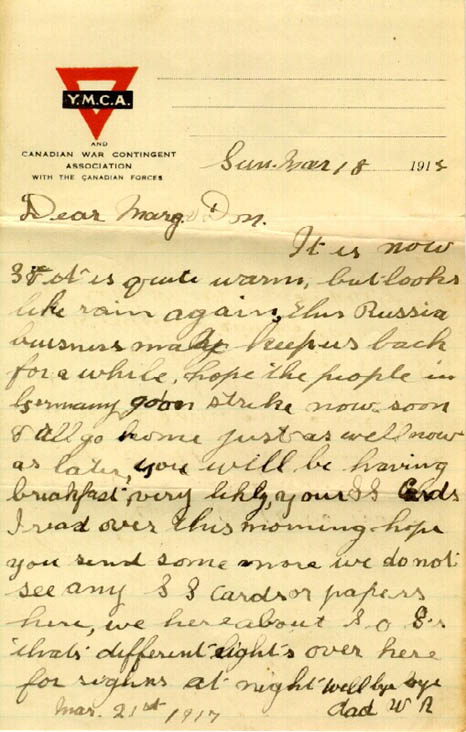 Y.M.C.A.
AND
CANADIAN WAR CONTINGENT
ASSOCIATION
WITH THE CANADIAN FORCES
Sun. Mar 18 191
Dear Marg. Don.
It is now
3 & it is quite warm, but looks
like rain again, this Russia
buisness may keep us back
for a while, hope the people in
Germany go on strike now soon
& all go home just as well now
as later, you will be having
breakfast, very likly, your SS Cards
I read over this morning hope
you send some more we do not
see any SS Cards or papers
here, we hear about S O S's
thats different lights over here
for at night well bye bye
dad
Mar. 21st 1917